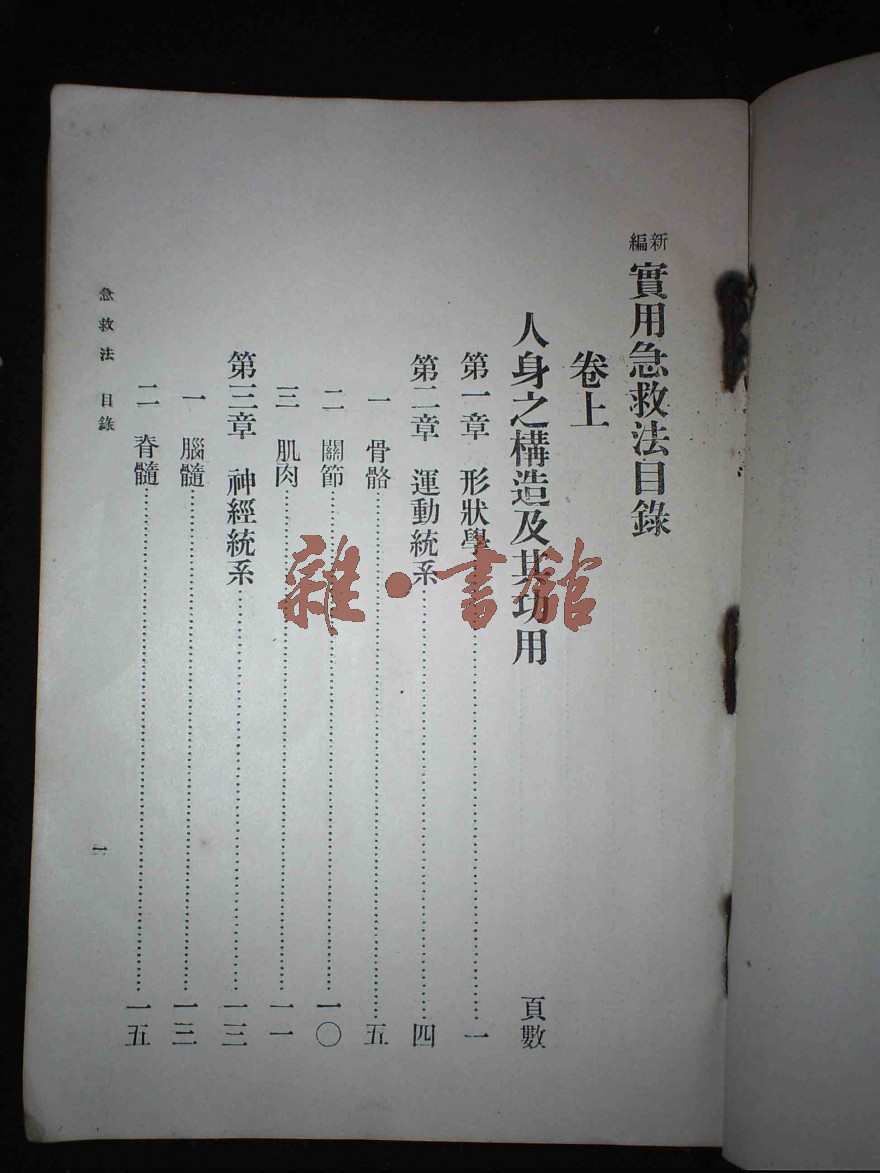 新編實用急救法目錄
卷上
人身之構造及其功用 頁數
第一章 形狀學 一
第二章 運動統系 四
一 骨骼 五
二 關節 一〇
三 肌肉 一一
第三章 神經統系 一三
一 腦髓 一三
二 脊髓 一五
急救法 目錄 一
雜·書館